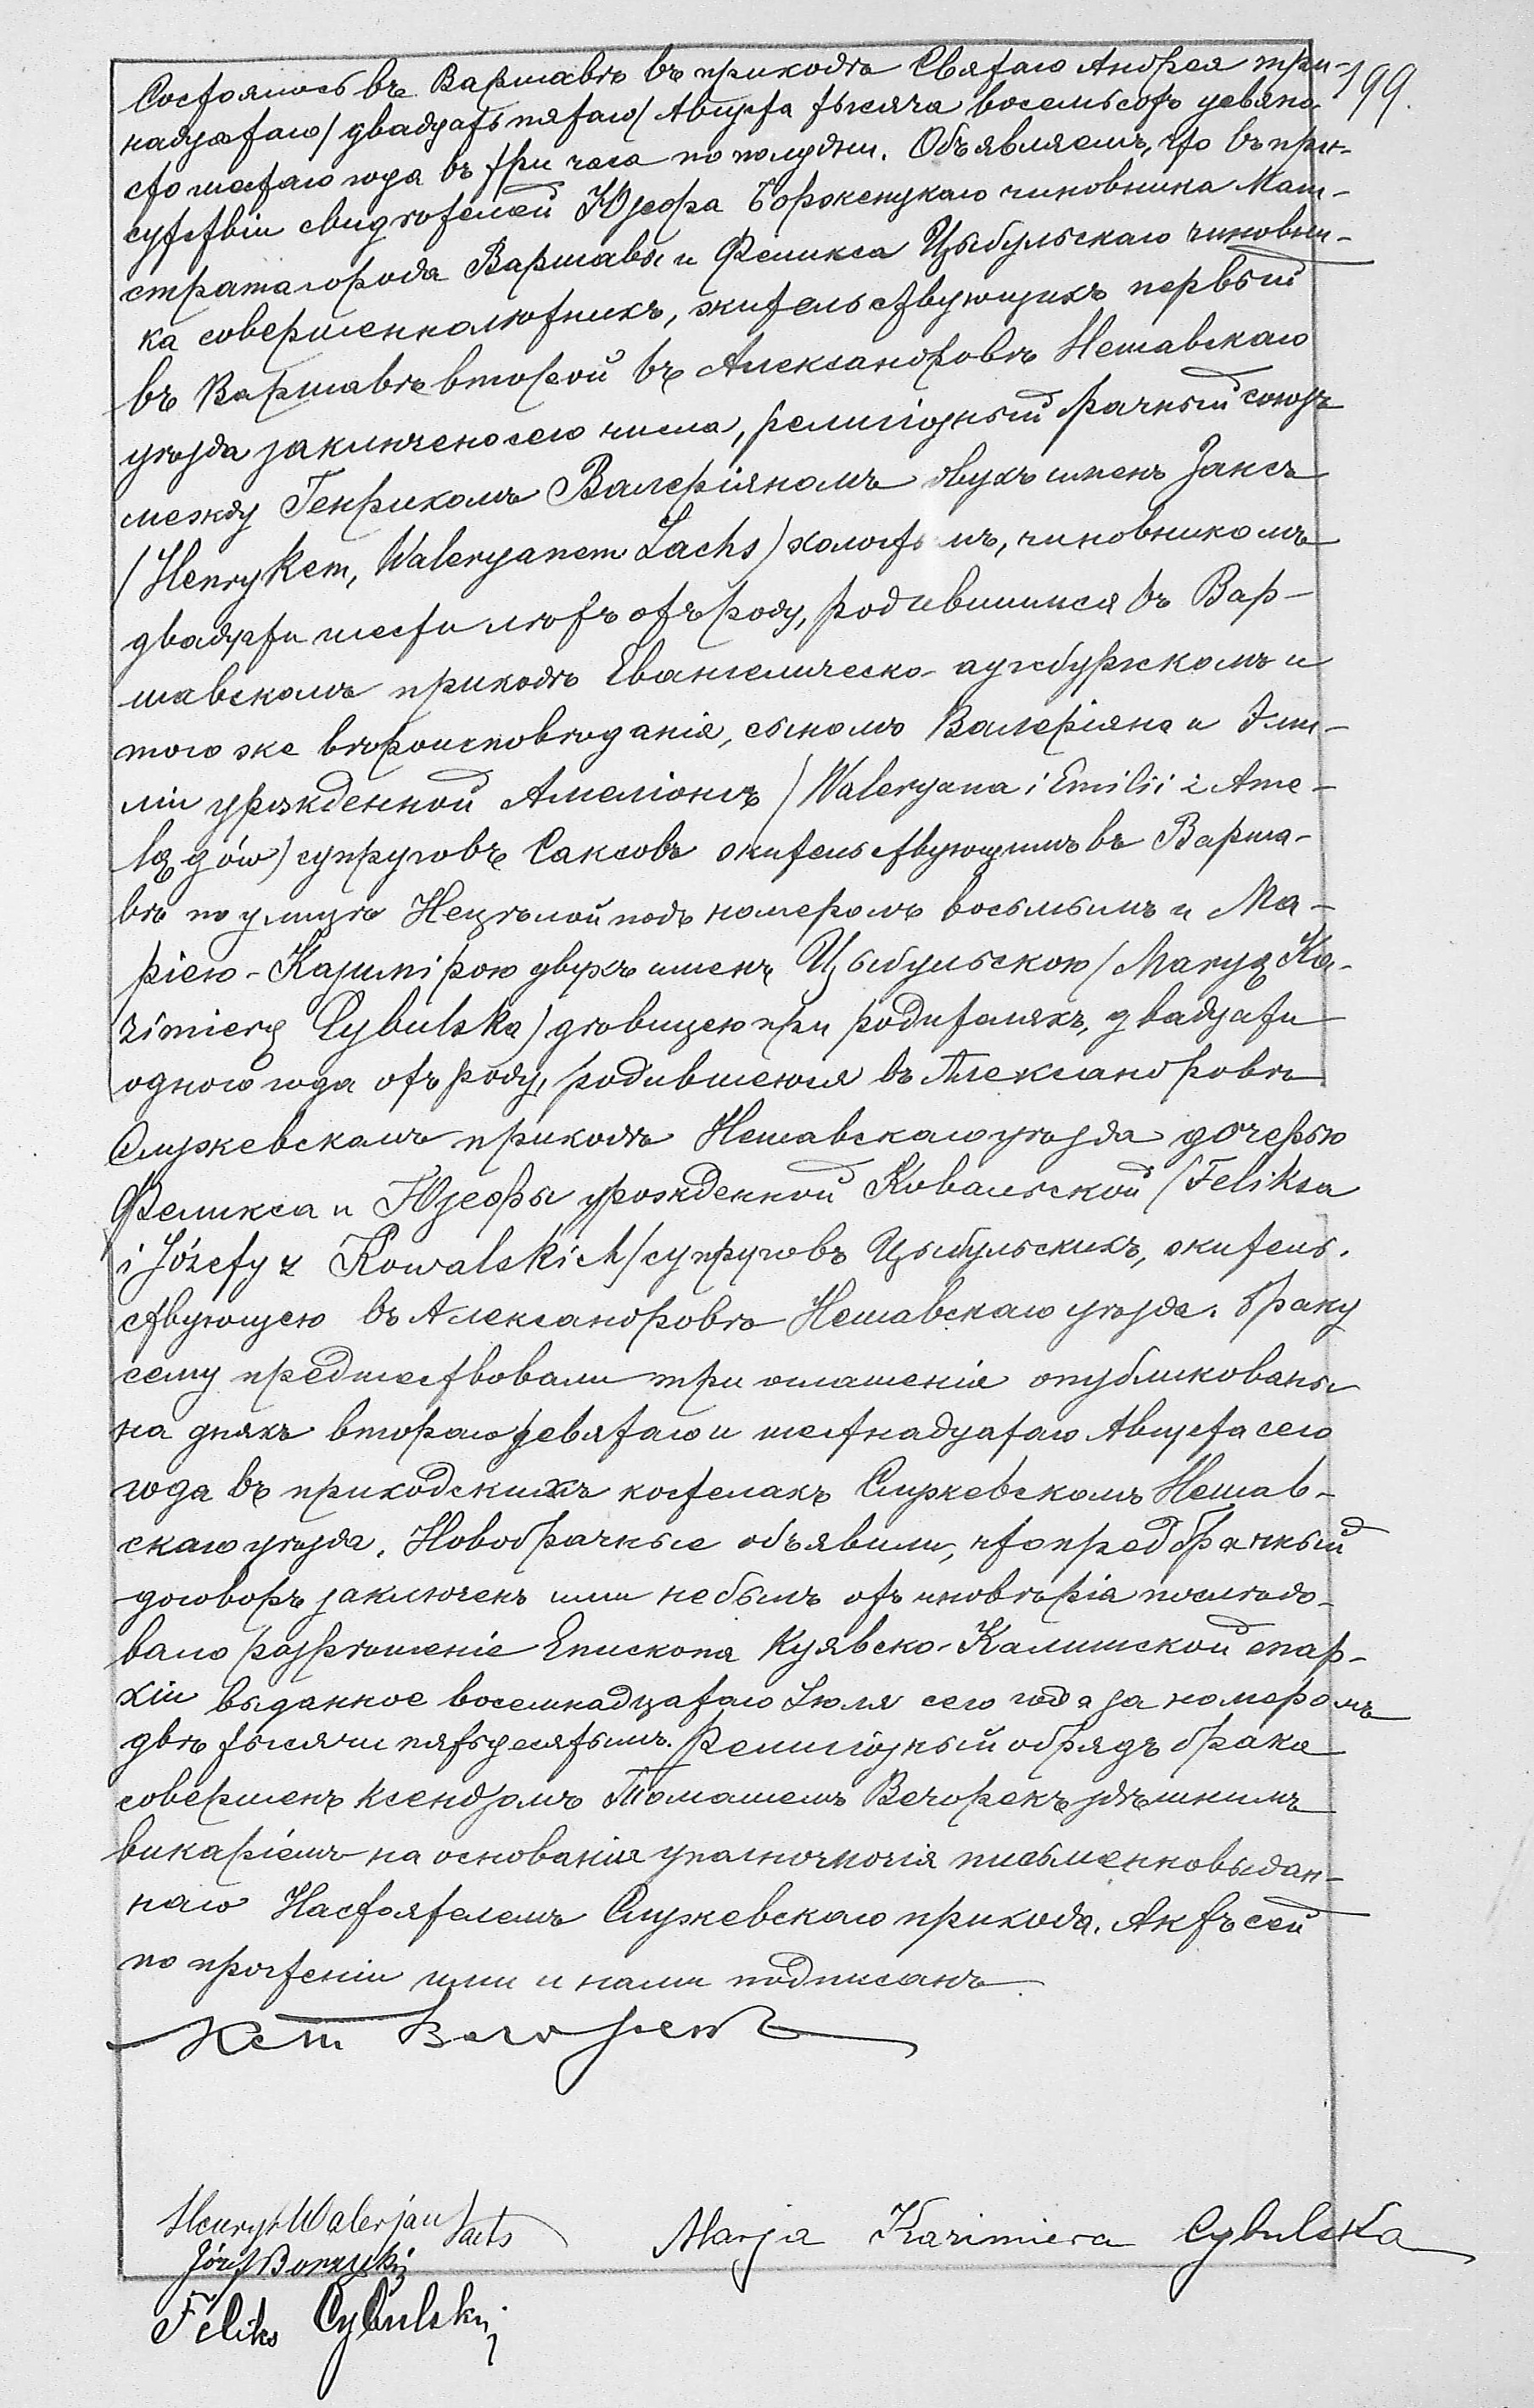 Состоялось въ Варшавѣ въ приходѣ Святаго Андрея три- 199.
надцатаго/двадцать пятаго/ Августа тысяча восемьсотъ девяно
сто шестаго года въ три часа по полудни. Объявляемъ, что въ при-
сутствіи свидѣтелей Юзефа Борженцкаго чиновника Маги-
страта города Варшавы и Феликса Цыбульскаго чиновни-
ка совершеннолѣтнихъ, жительствующихъ первый
въ Варшавѣ второй въ Александровѣ Нешавскаго
уѣзда заключено сего числа, религіозный брачный союзъ
между Генрихомъ Валеріяномъ двухъ именъ Заксъ
(Henrykem, Waleryanem Sachs) холостымъ, чиновникомъ
двадцати шести лѣтъ отъ роду, родившимся въ Вар-
шавскомъ приходѣ Евангелическо-аугсбургскомъ и
того же вѣроисповѣданія, сыномъ Валеріяна и Эми-
ліи урожденной Амелюнгъ (Waleryana i Emilii z Ame-
lągów) супруговъ Саксовъ жительствующимъ въ Варша-
вѣ по улицѣ Нецѣлой подъ номеромъ восьмымъ и Ма-
ріею-Казимірою двухъ именъ Цыбульскою (Maryą Ka-
zimierą Cybulską) дѣвицею при родителяхъ, двадцати
одного года отъ роду, родившеюся въ Александровѣ
Служевскомъ приходѣ Нешавскаго уѣзда дочерью
Феликса и Юзефы урожденной Ковальской (Feliksa
i Józefy z Kowalskich) супруговъ Цыбульскихъ, житель-
ствующею въ Александровѣ Нешавскаго уѣзда. Браку
сему предшествовали три оглашенія опубликованы
на дняхъ втораго девятаго и шестнадцатаго Августа сего
года въ приходскихъ костелахъ Служевскомъ Нешав-
скаго уѣзда. Новобрачные объявили, что предбрачный
договоръ заключенъ ими не былъ отъ иновѣрія послѣдо-
вало разрѣшеніе Епископа Куявско-Калишской епар-
хіи выданное восемнадцатаго Іюля сего года за номеромъ
двѣ тысячи пятьдесятымъ. Религіозный обрядъ брака
совершенъ ксендзомъ Томашемъ Вечорекъ здѣшнимъ
викаріемъ на основаніи уполномочія письменно выдан-
наго Настоятелемъ Служевскаго прихода. Актъ сей
по прочтеніи ими и нами подписанъ
Henryk Walerjan Sachs Marja Kazimiera Cybulska
Józef
Feliks Cybulski